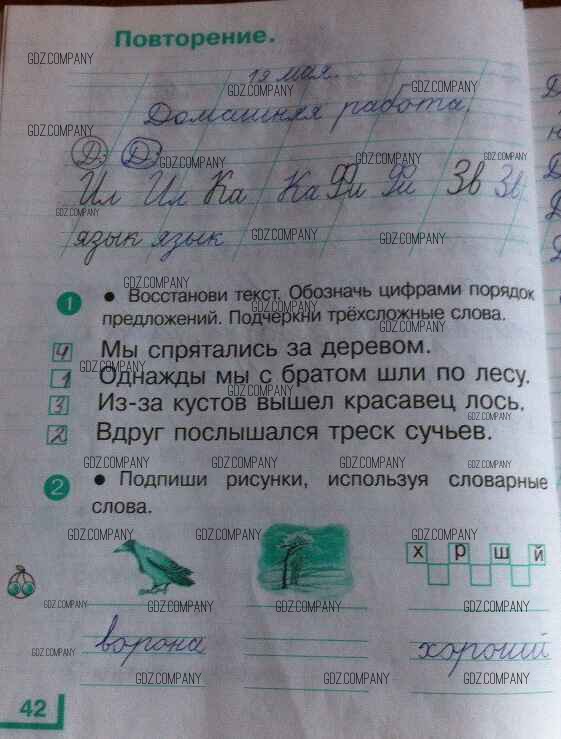 Повторение.
19 мая.
Домашняя работа.
Д Д
Ил Ил Ка Ка Фи Фи Зв Зв
язык язык
1 • Восстанови текст. Обозначь цифрами порядок
предложений. Подчеркни трёхсложные слова.
4 Мы спрятались за деревом.
1 Однажды мы с братом шли по лесу.
3 Из-за кустов вышел красавец лось.
2 Вдруг послышался треск сучьев.
2 • Подпиши рисунки, используя словарные
слова.
х р ш й
ворона хороший
42
GDZ.COMPANY